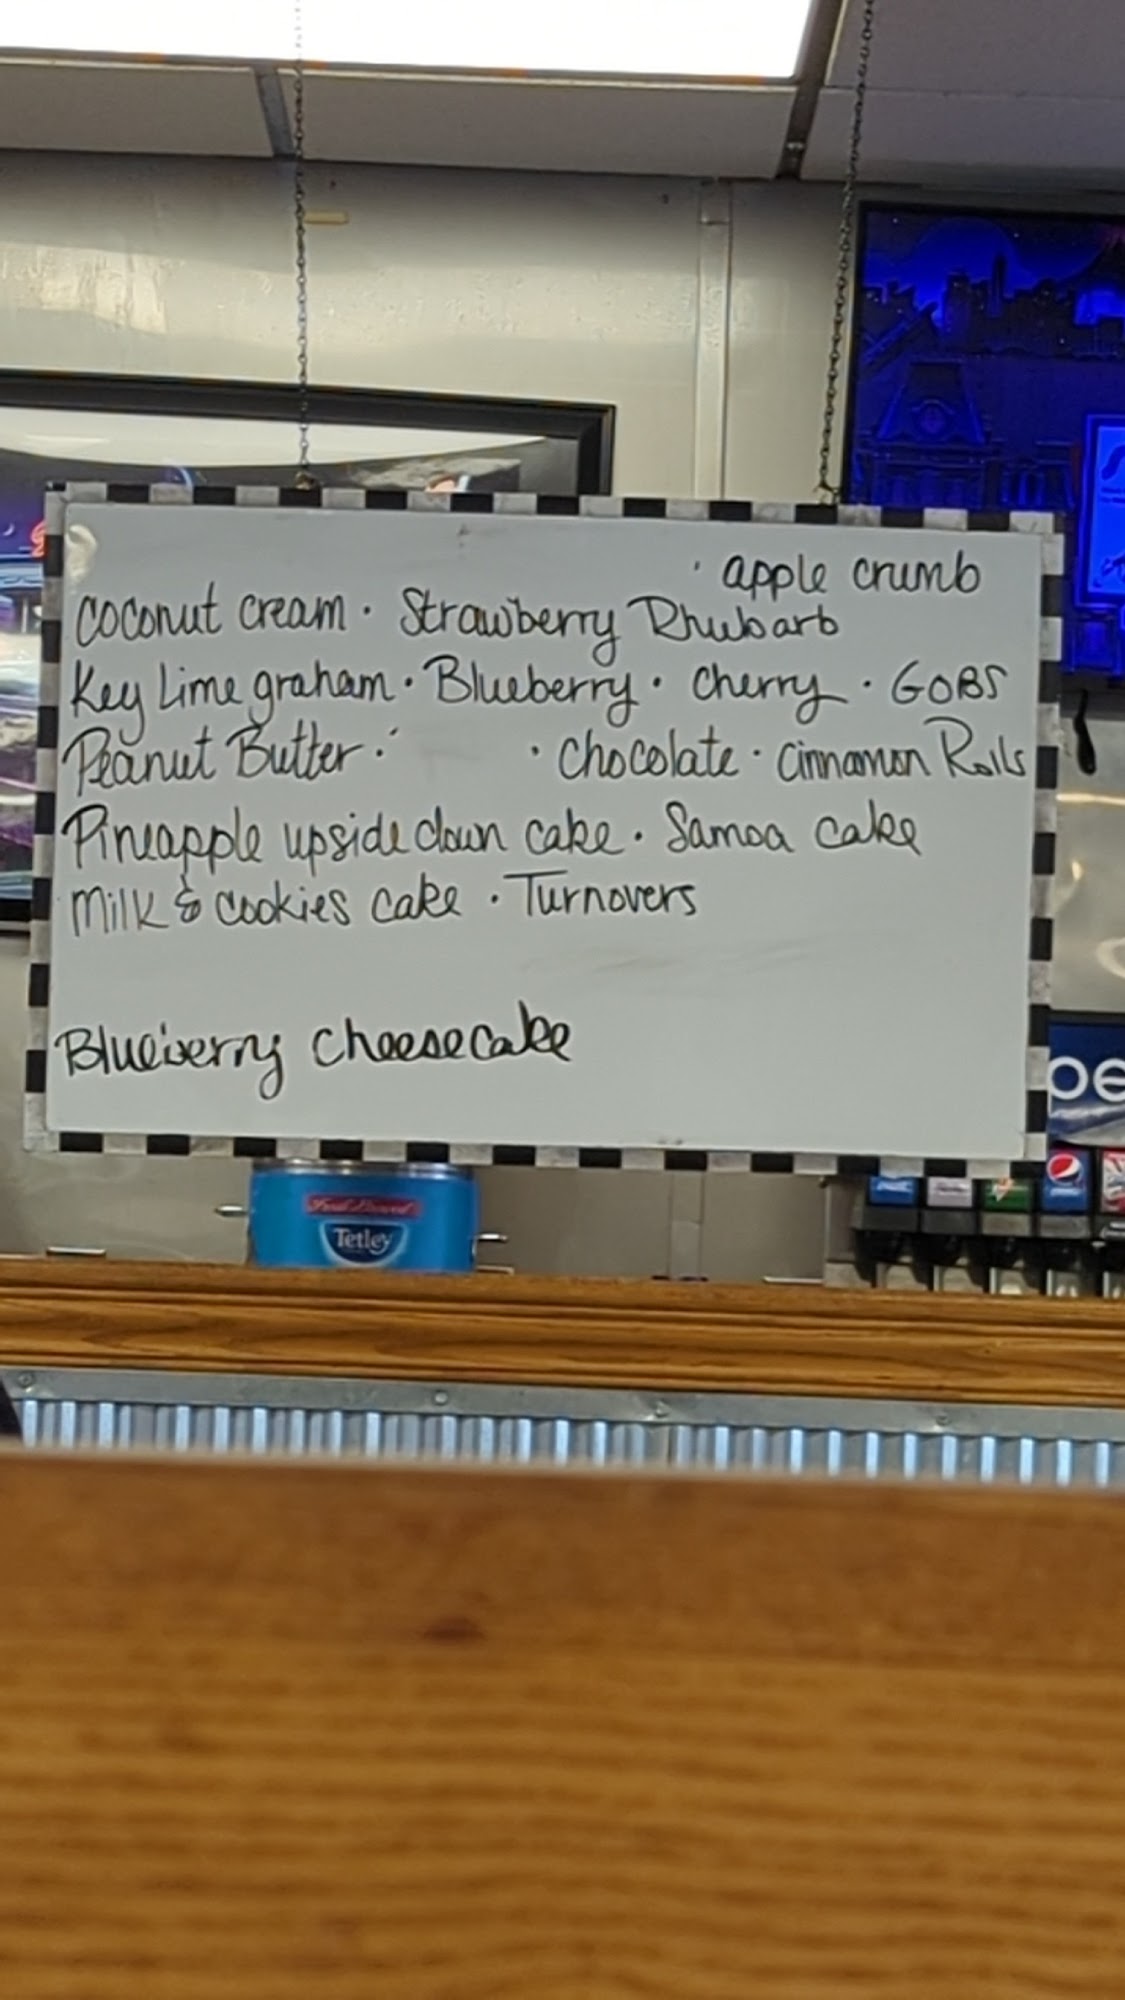 · apple crumb
coconut cream · Strawberry Rhubarb
Key Lime graham · Blueberry · Cherry · GOBS
Peanut Butter · · Chocolate · Cinnamon Rolls
Pineapple upside down cake · Samoa cake
Milk & cookies cake · Turnovers
Blueberry Cheesecake
pe
Tetley